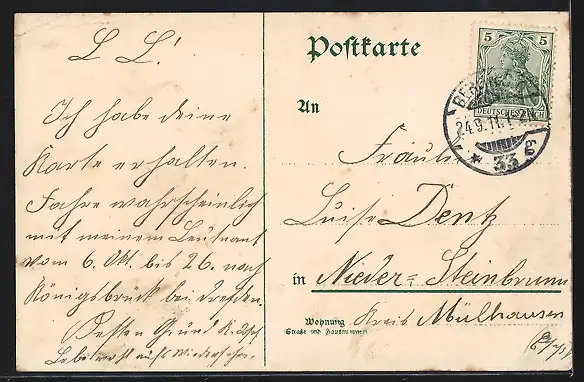 L L!
Ich habe deine
Karte erhalten
Fahre wahrscheinlich
mit meinem Leutnant
vom 6. Okt. bis 26. nach
Königsbrück bei Dresden.
Besten Gruß
Lebewohl auf Wiedersehen.
Postkarte
5 5
DEUTSCHES REICH
BERLIN
24.9.11.1-2N
* 33
An
Fräulein
Luise Dentz
in Nieder-Steinbrunn
Wohnung
Straße und Hausnummer
Kreis Mülhausen